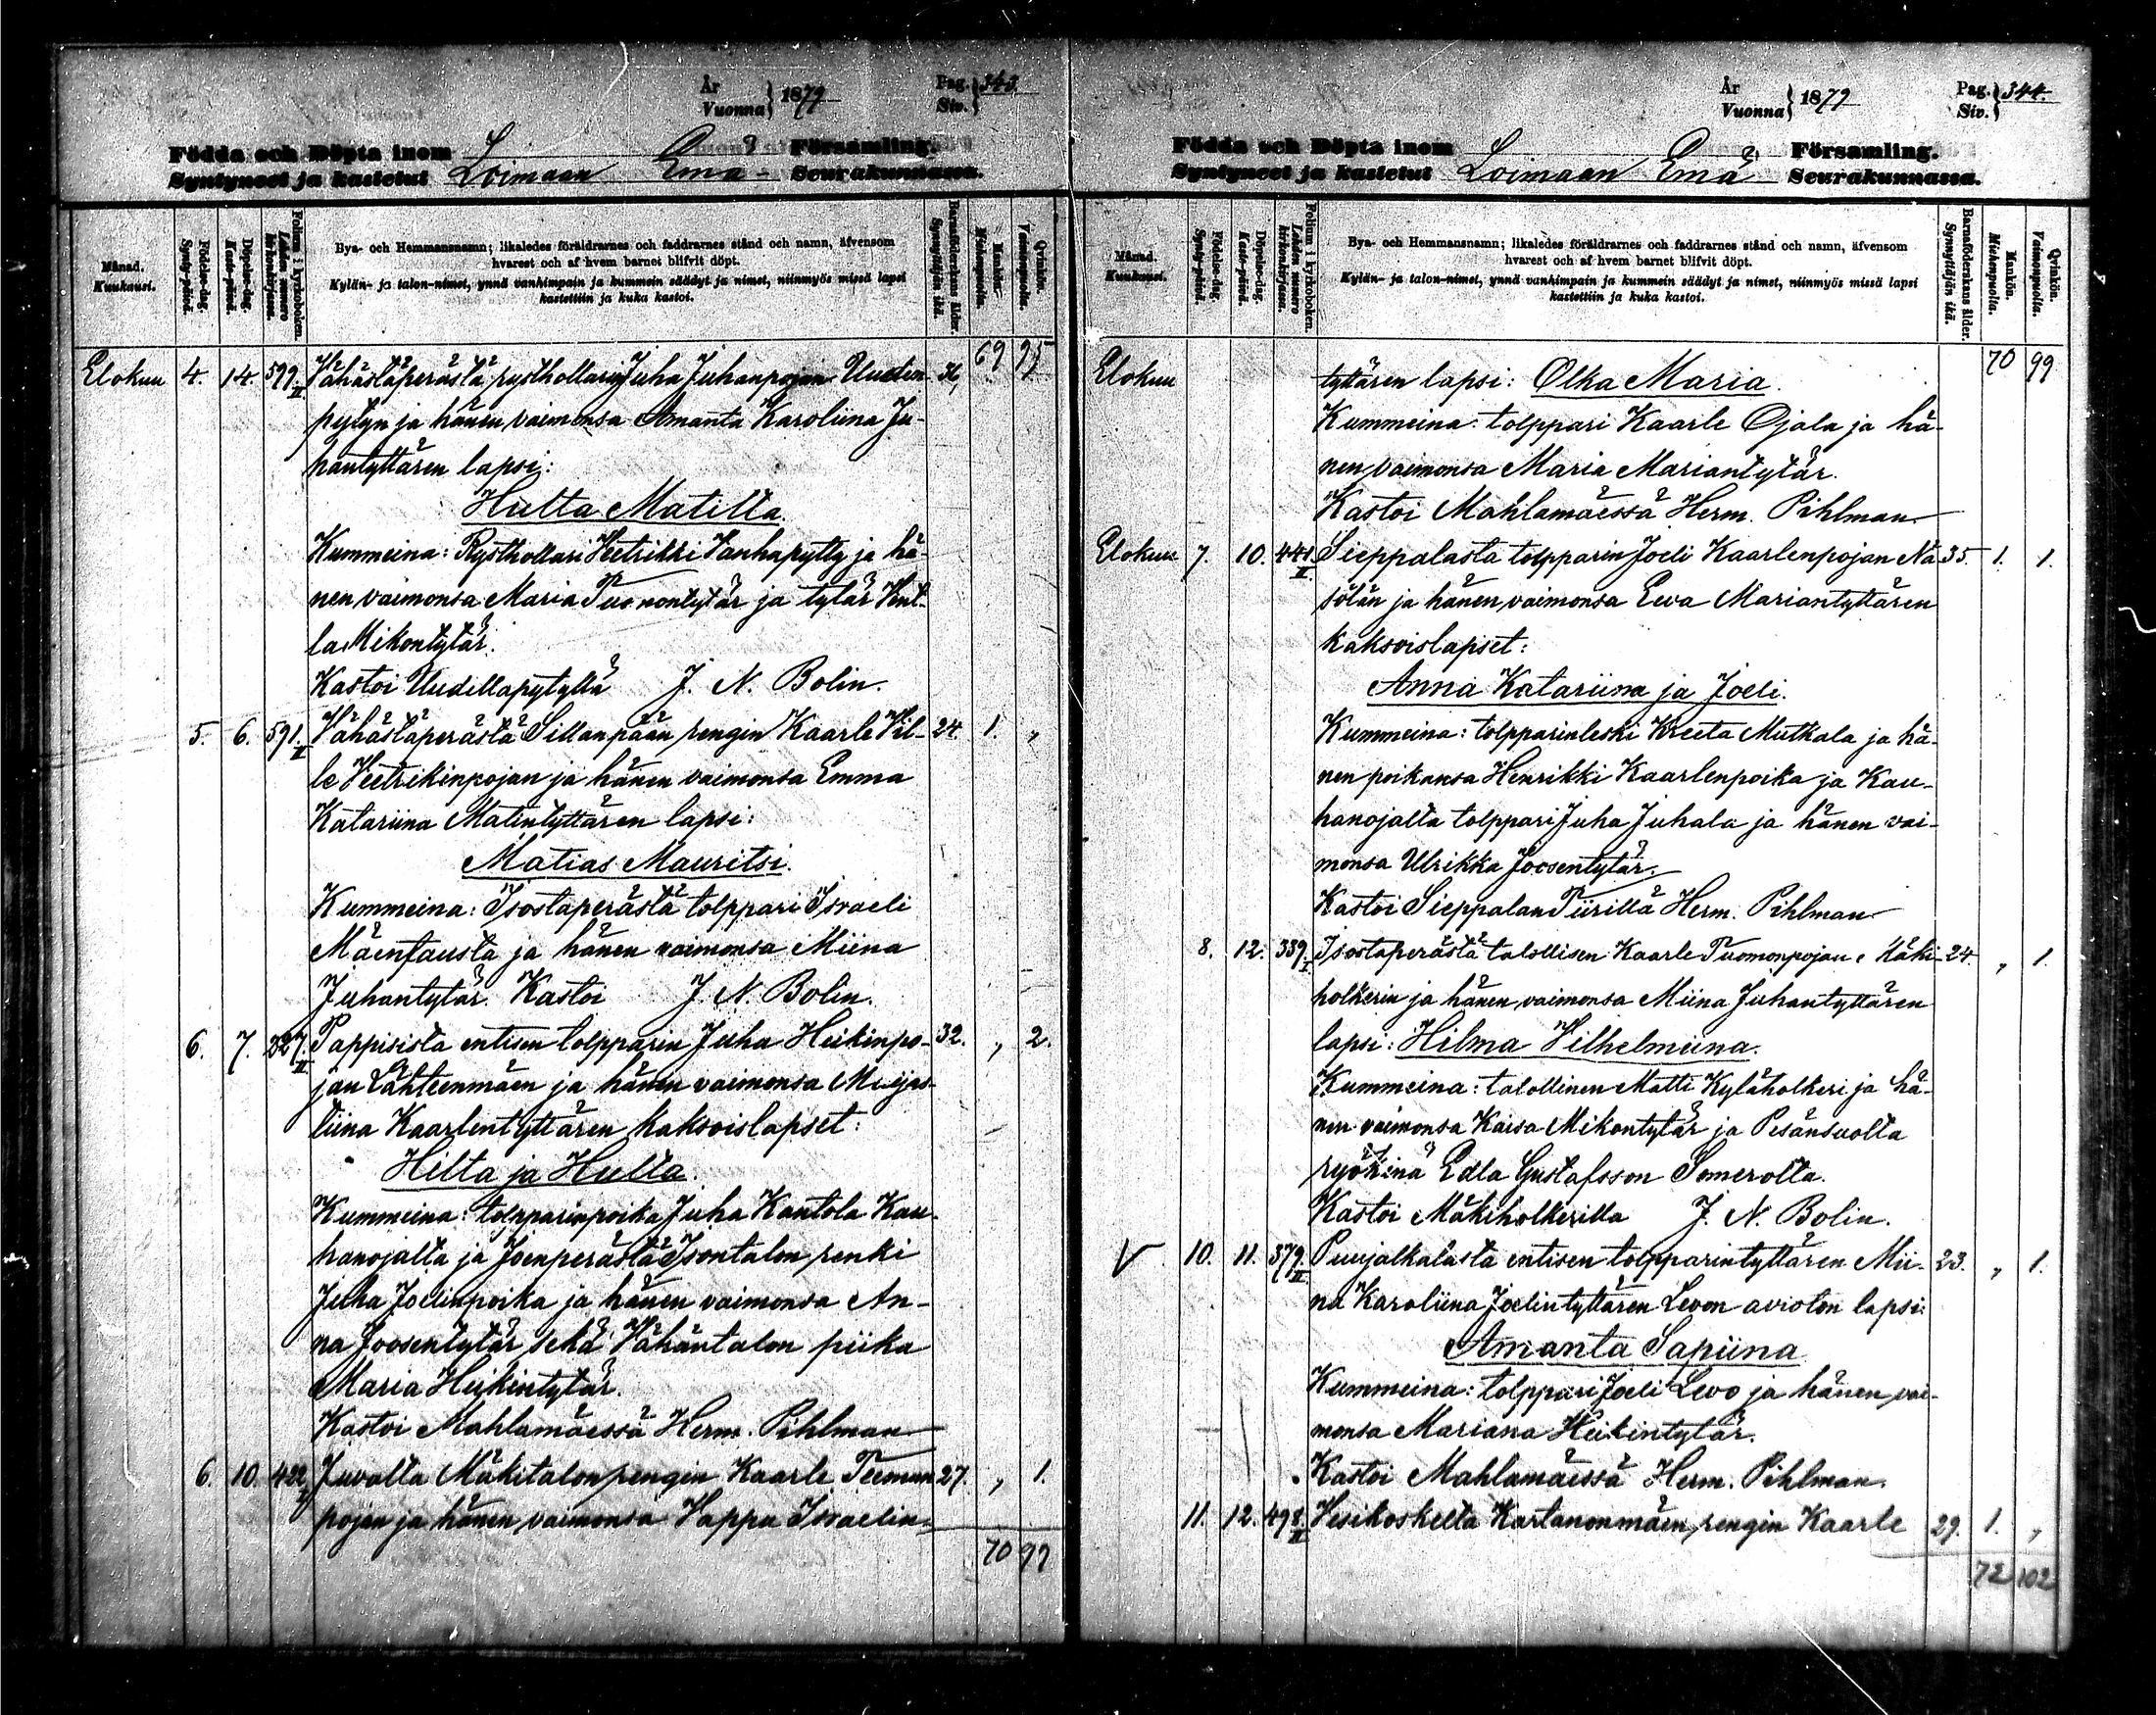 År
Vuonna } 1879
Pag.
Siv. } 343.
Födda och Döpta inom
Syntyneet ja kastetut Loimaan Emä- Församling.
Seurakunnassa.
Månad.
Kuukausi.
Födelse-dag.
Synty-päivä.
Döpelse-dag.
Kaste-päivä.
Folium i kyrkoboken.
Lehden numero kirkonkirjassa.
Bya- och Hemmansnamn; likaledes föräldrarnes och faddrarnes stånd och namn, äfvensom
hvarest och af hvem barnet blifvit döpt.
Kylän- ja talon-nimet, ynnä vanhimpain ja kummein säädyt ja nimet, niinmyös missä lapsi
kastettiin ja kuka kastoi.
Barnaföderskans ålder.
Synnyttäjän ikä.
Mankön.
Miehenpuolta.
Qvinkön.
Vaimonpuolta.
69 95
Elokuu 4. 14. 599 II Vähästäperästä rysthollarin Juha Juhanpojan Uuden-
pytyn ja hänen vaimonsa Amanta Karoliina Ju-
hantyttären lapsi:
Hulta Matilta.
Kummeina: Rysthollari Veetrikki Vanhapytty ja hä-
nen vaimonsa Maria Tuomontytär ja tytär Vent-
la Mikontytär.
Kastoi Uudellapytyllä J. N. Bolin.
5. 6. 591. II Vähästäperästä Sillanpään rengin Kaarle Vil- 24. 1. „
le Veetrikinpojan ja hänen vaimonsa Emma
Katariina Matintyttären lapsi:
Matias Mauritsi.
Kummeina: Isostaperästä tolppari Israeli
Mäentausta ja hänen vaimonsa Miina
Juhantytär. Kastoi J. N. Bolin.
6. 7. 327. II Pappisista entisen tolpparin Juha Heikinpo- 32. „ 2.
jan Lähteenmäen ja hänen vaimonsa Maijas-
tiina Kaarlentyttären kaksoislapset:
Hilta ja Hulta.
Kummeina: tolpparinpoika Juha Kantola Kau-
hanojalta ja Joenperästä Isontalon renki
Juha Joelinpoika ja hänen vaimonsa An-
na Joosentytär sekä Vähäntalon piika
Maria Heikintytär.
Kastoi Mahlamäessä Herm. Pihlman
6. 10. 422 Juvalta Mäkitalon rengin Kaarle Teemun 27. „ 1.
pojan ja hänen vaimonsa Vappu Israelin-
70 97
År
Vuonna } 1879
Pag.
Siv. } 344.
Födda och Döpta inom
Syntyneet ja kastetut Loimaan Emä Församling.
Seurakunnassa.
Månad.
Kuukausi.
Födelse-dag.
Synty-päivä.
Döpelse-dag.
Kaste-päivä.
Folium i kyrkoboken.
Lehden numero kirkonkirjassa.
Bya- och Hemmansnamn; likaledes föräldrarnes och faddrarnes stånd och namn, äfvensom
hvarest och af hvem barnet blifvit döpt.
Kylän- ja talon-nimet, ynnä vanhimpain ja kummein säädyt ja nimet, niinmyös missä lapsi
kastettiin ja kuka kastoi.
Barnaföderskans ålder.
Synnyttäjän ikä.
Mankön.
Miehenpuolta.
Qvinkön.
Vaimonpuolta.
70 99
Elokuu tyttären lapsi: Olka Maria.
Kummeina tolppari Kaarle Ojala ja hä-
nen vaimonsa Maria Mariantytär.
Kastoi Mahlamäessä Herm. Pihlman
Elokuu 7. 10. 441 II Sieppalasta tolpparin Joeli Kaarlenpojan Nä- 35. 1. 1.
sölän ja hänen vaimonsa Eeva Mariantyttären
kaksoislapset:
Anna Katariina ja Joeli.
Kummeina: tolpparinleski Kreeta Mutkala ja hä-
nen poikansa Henrikki Kaarlenpoika ja Kau-
hanojalta tolppari Juha Juhala ja hänen vai-
monsa Ulrikka Joosentytär.
Kastoi Sieppalan Piirillä Herm. Pihlman
8. 12. 339. I Isostaperästä talollisen Kaarle Tuomonpojan Mäki- 24. „ 1.
holkerin ja hänen vaimonsa Miina Juhantyttären
lapsi: Hilma Vilhelmiina.
Kummeina: talollinen Matti Kyläholkeri ja hä-
nen vaimonsa Kaisa Mikontytär ja Pesänsuolta
ryökinä Edla Gustafsson Somerolta.
Kastoi Mäkiholkerilla J. N. Bolin.
V 10. 11. 379. II Puujalkalasta entisen tolpparintyttären Mii- 23. „ 1.
na Karoliina Joelintyttären Levon avioton lapsi:
Amanta Sapiina
Kummeina: tolppari Joeli Levo ja hänen vai-
monsa Mariana Heikintytär.
Kastoi Mahlamäessä Herm. Pihlman.
11. 12. 498. II Vesikoskelta Kartanonmäen rengin Kaarle 29. 1. „
72 102